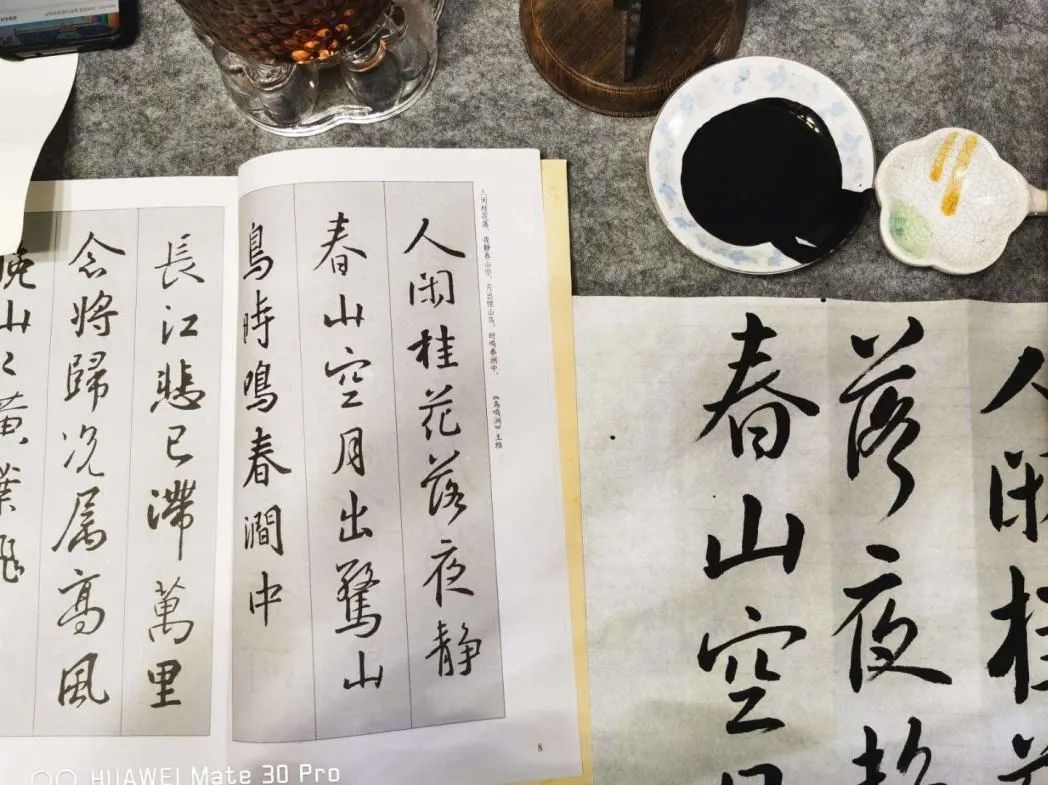 人闲桂
落夜静
春山空
人闲桂花落，夜静春山空。月出惊山鸟，时鸣春涧中。
《鸟鸣涧》王维
人闲桂花落夜静
春山空月出驚山
鳥時鳴春澗中
8
長江悲已滯萬里
念將歸况属高風
晚山々黄葉飛
HUAWEI Mate 30 Pro